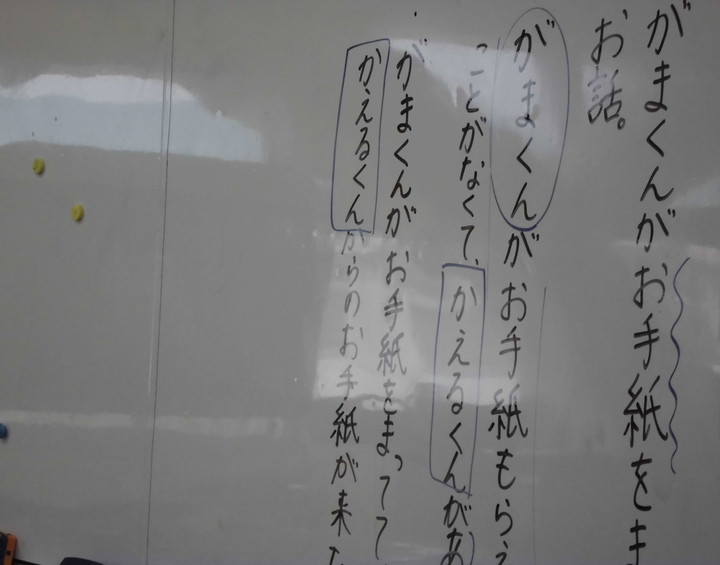 がまくんがお手紙をま
お話。
がまくんがお手紙もらえ
ことがなくて、かえるくんがあ
がまくんがお手紙をまってて
かえるくんからのお手紙が来